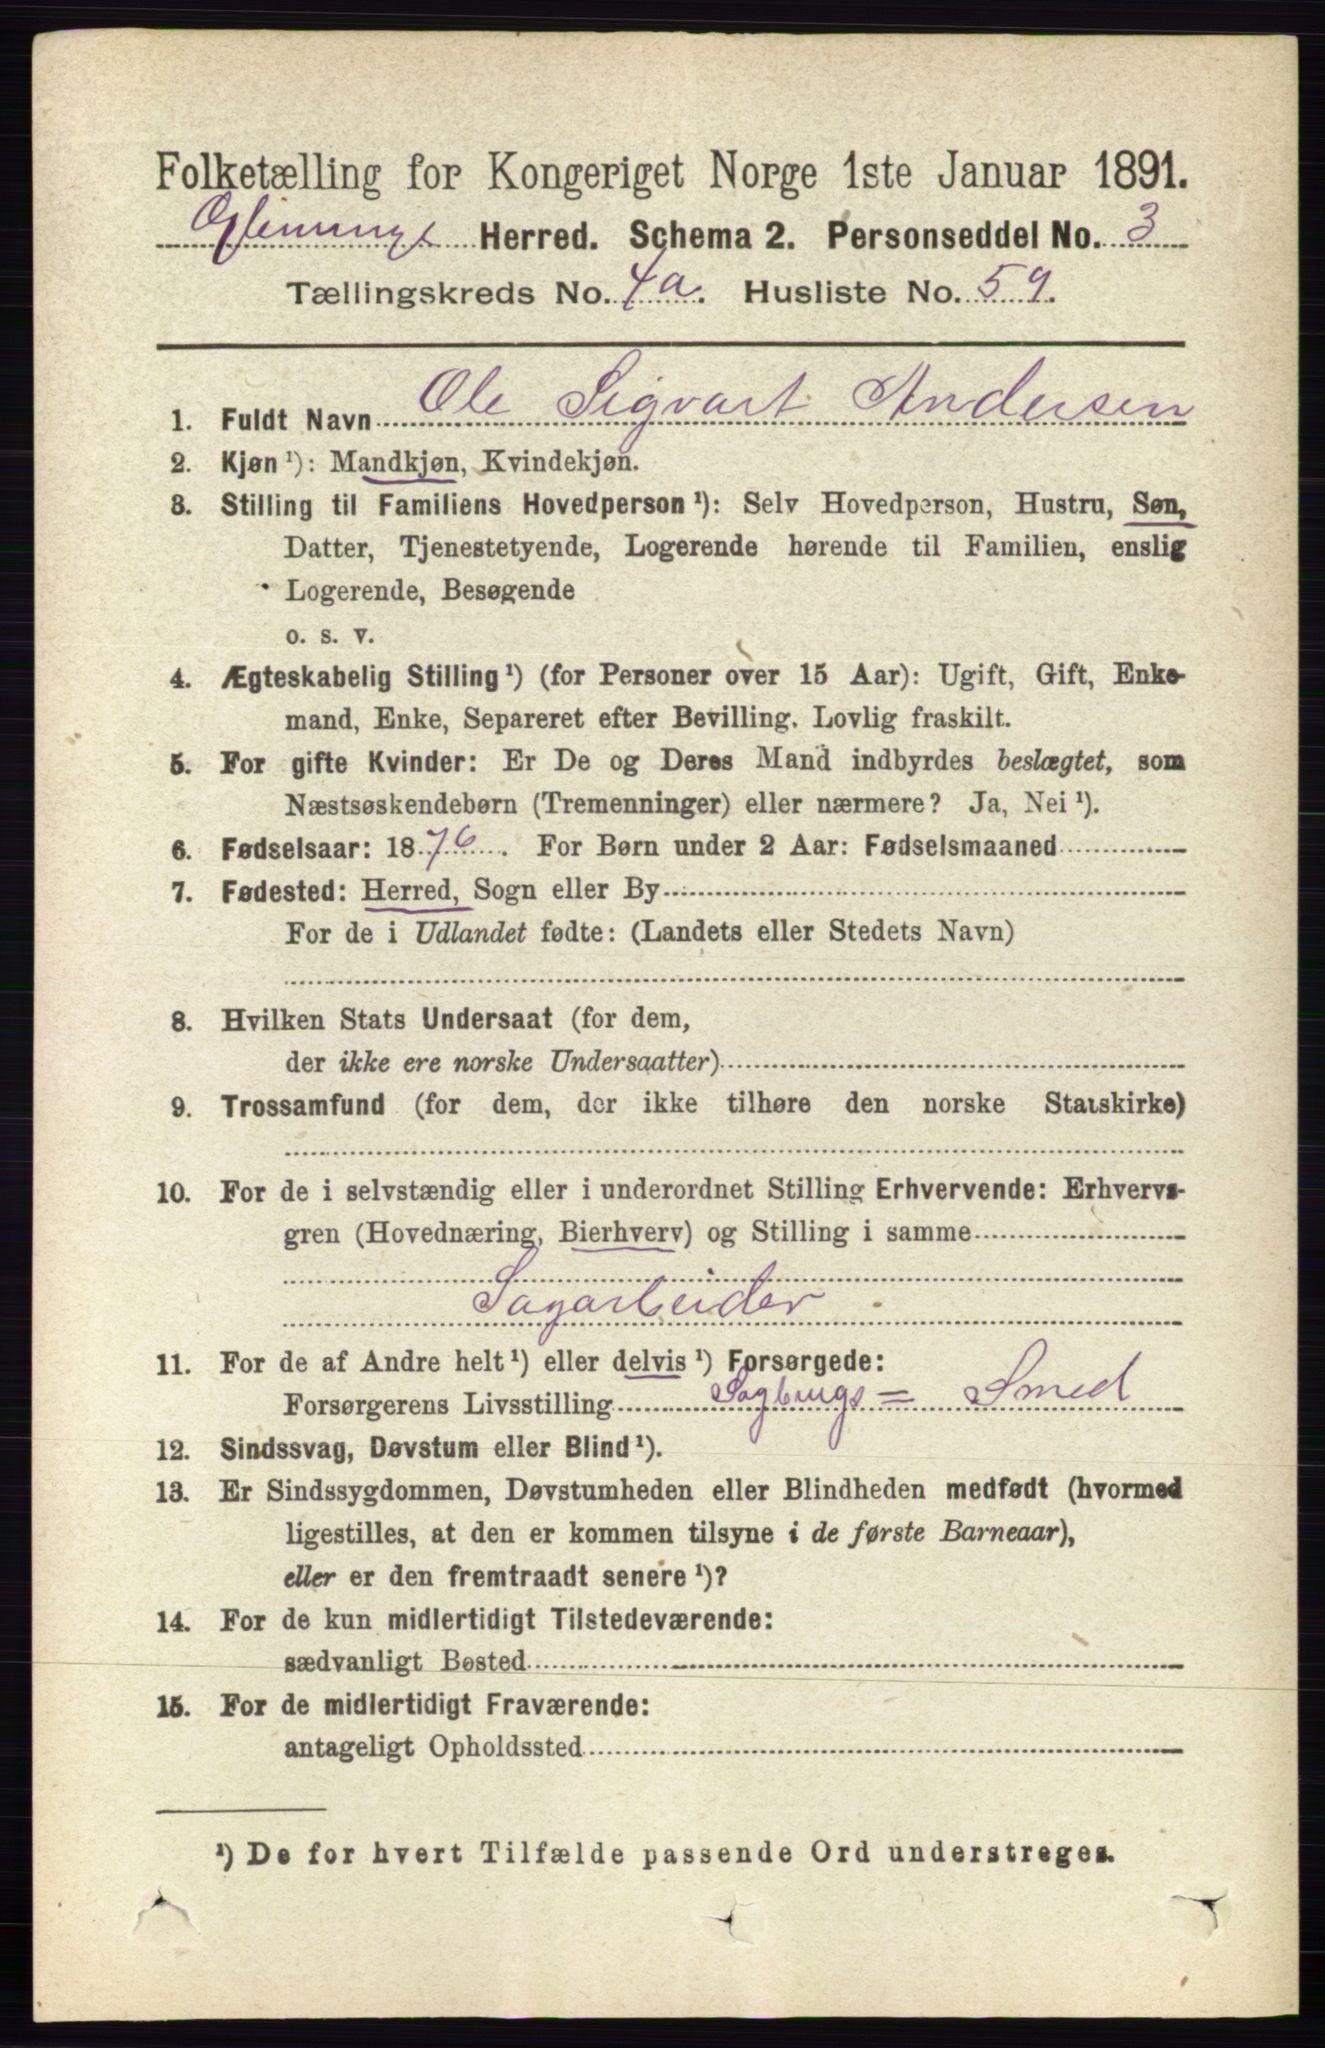 Folketælling for Kongeriget Norge 1ste Januar 1891.
Glemminge Herred. Schema 2. Personseddel No. 3
Tællingskreds No. 4a. Husliste No. 59.
1. Fuldt Navn Ole Sigvart Andersen
2. Kjøn¹): Mandkjøn, Kvindekjøn.
3. Stilling til Familiens Hovedperson¹): Selv Hovedperson, Hustru, Søn,
Datter, Tjenestetyende, Logerende hørende til Familien, enslig
Logerende, Besøgende
o. s. v.
4. Ægteskabelig Stilling¹) (for Personer over 15 Aar): Ugift, Gift, Enke-
mand, Enke, Separeret efter Bevilling. Lovlig fraskilt.
5. For gifte Kvinder: Er De og Deres Mand indbyrdes beslægtet, som
Næstsøskendebørn (Tremenninger) eller nærmere? Ja, Nei¹).
6. Fødselsaar: 1876. For Børn under 2 Aar: Fødselsmaaned
7. Fødested: Herred, Sogn eller By
For de i Udlandet fødte: (Landets eller Stedets Navn)
8. Hvilken Stats Undersaat (for dem,
der ikke ere norske Undersaatter)
9. Trossamfund (for dem, der ikke tilhøre den norske Statskirke)
10. For de i selvstændig eller i underordnet Stilling Erhvervende: Erhvervs-
gren (Hovednæring, Bierhverv) og Stilling i samme
Sagarbeider
11. For de af Andre helt¹) eller delvis¹) Forsørgede:
Forsørgerens Livsstilling Sagbrugs= Smed
12. Sindssvag, Døvstum eller Blind¹).
13. Er Sindssygdommen, Døvstumheden eller Blindheden medfødt (hvormed
ligestilles, at den er kommen tilsyne i de første Barneaar),
eller er den fremtraadt senere¹)?
14. For de kun midlertidigt Tilstedeværende:
sædvanligt Bosted
15. For de midlertidigt Fraværende:
antageligt Opholdssted
¹) De for hvert Tilfælde passende Ord understreges.